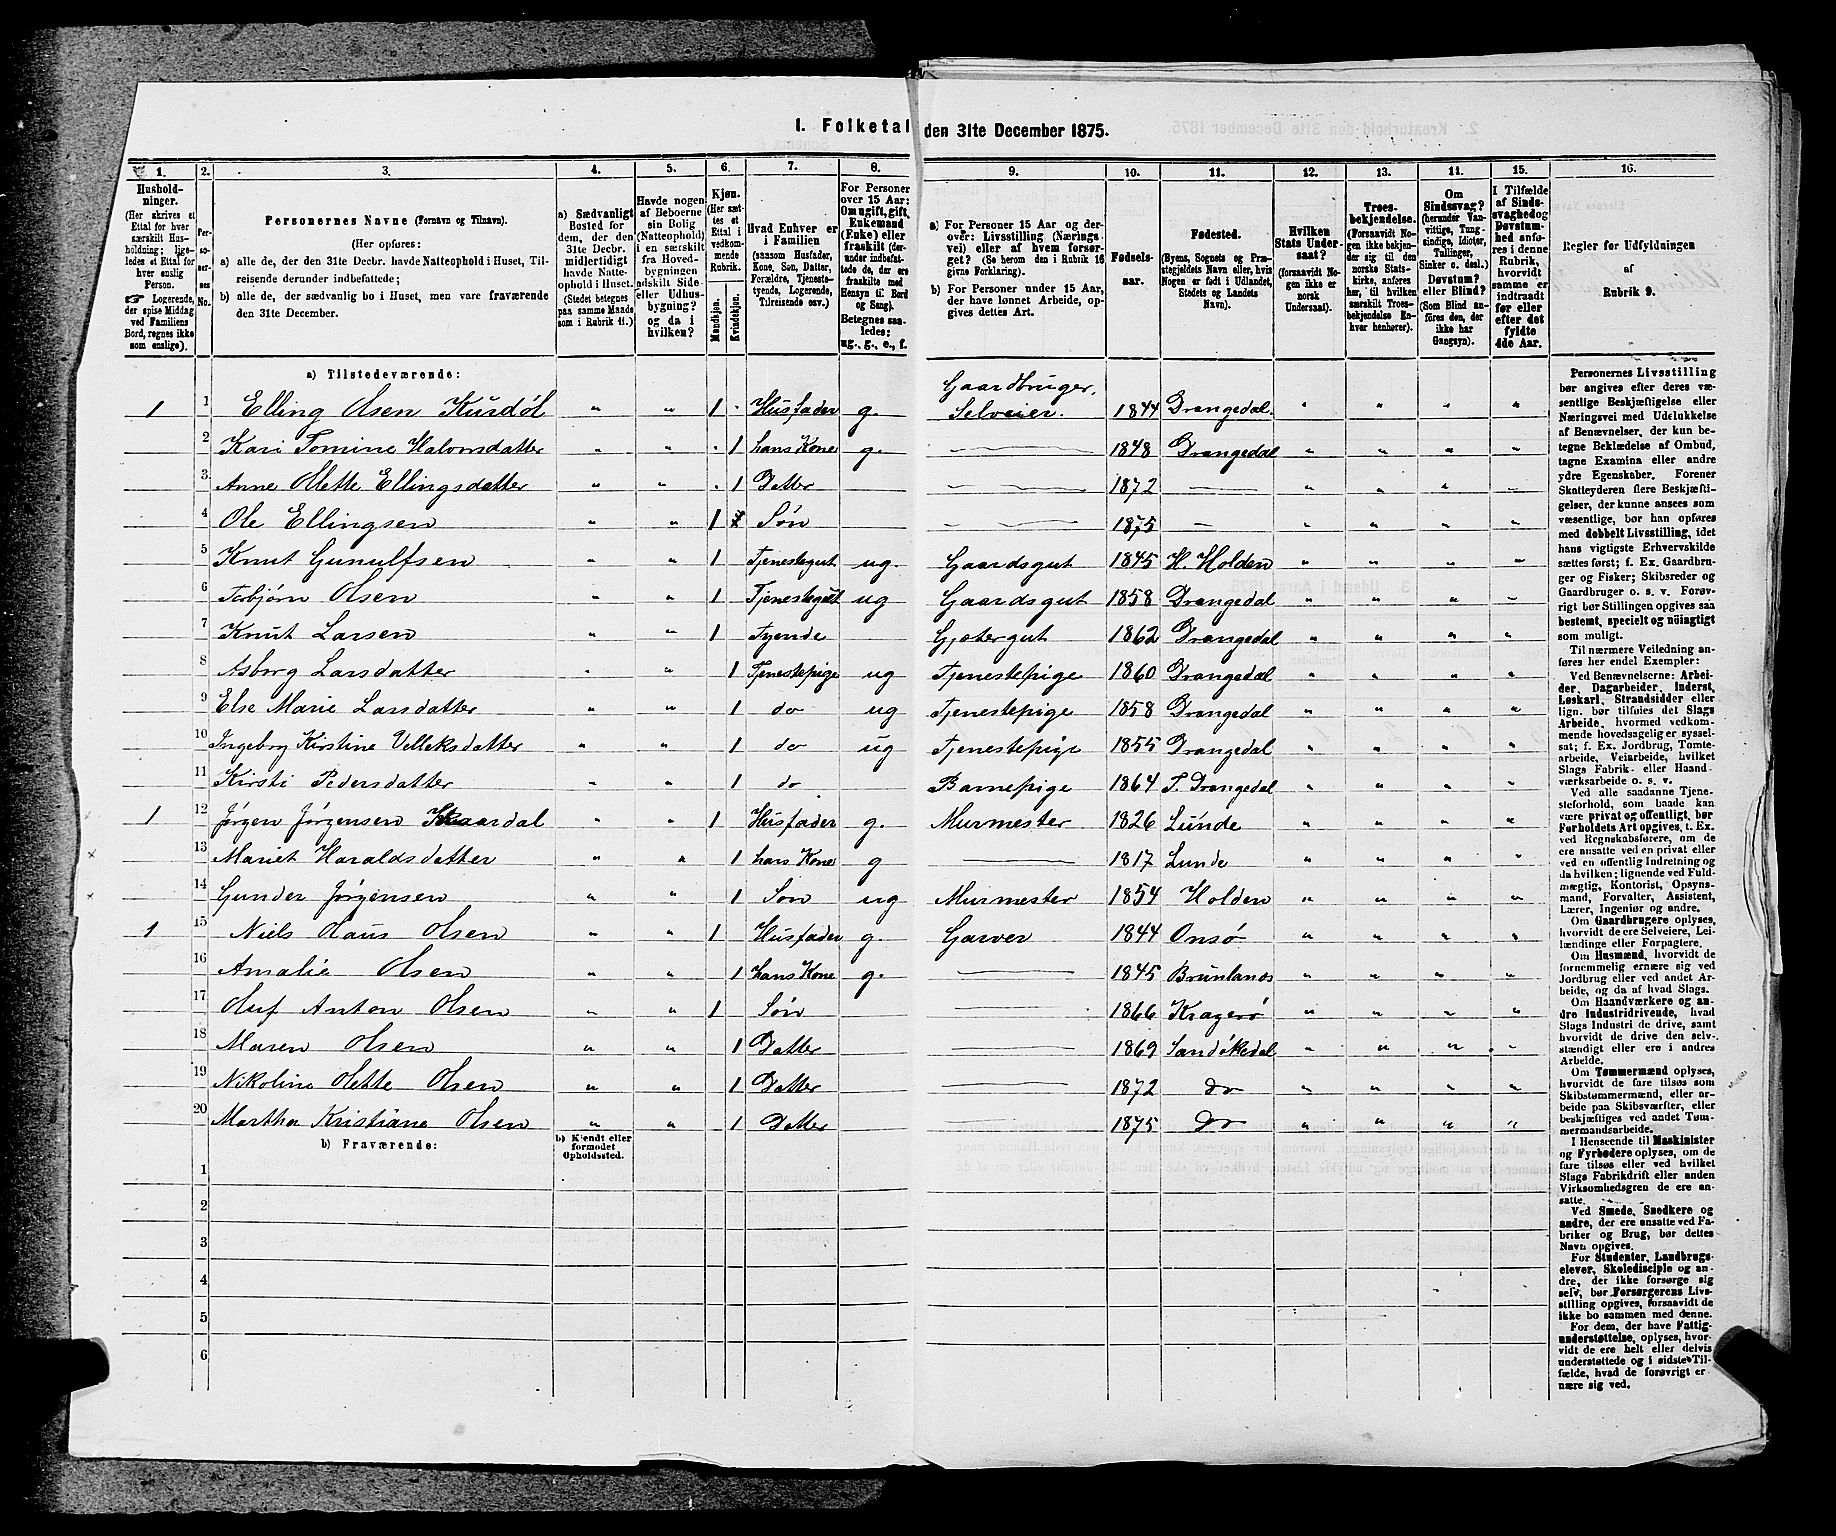 1. Folketal den 31te December 1875.
1. 2. 3. 4. 5. 6. 7. 8. 9. 10. 11. 12. 13. 14. 15. 16.
Hushold-
ninger.
(Her skrives et
Ettal for hver
særskilt Hus-
holdning; lige-
ledes et Ettal for
hver enslig
Person.
☞ Logerende,
der spise Middag
ved Familiens
Bord, regnes ikke
som enslige).
Per-
so-
ner-
nes
No.
Personernes Navne (Fornavn og Tilnavn).
(Her opføres:
a) alle de, der den 31te Decbr. havde Natteophold i Huset, Til-
reisende derunder indbefattede;
b) alle de, der sædvanlig bo i Huset, men vare fraværende
den 31te December.
a) Sædvanligt
Bosted for
dem, der den
31te Decbr.
midlertidigt
havde Natte-
ophold i Huset.
(Stedet betegnes
paa samme Maade
som i Rubrik 11.)
Havde nogen
af Beboerne
sin Bolig
(Natteophold)
i en særskilt
fra Hoved-
bygningen
adskilt Side-
eller Udhus-
bygning?
og da i
hvilken?
Kjøn.
(Her sæt-
tes et
Ettal i
vedkom-
mende
Rubrik.
Mandkjøn.
Kvindekjøn.
Hvad Enhver er
i Familien
(saasom Husfader,
Kone, Søn, Datter,
Forældre, Tjeneste-
tyende, Logerende,
Tilreisende osv.)
For Personer
over 15 Aar:
Om ugift, gift,
Enkemand
(Enke) eller
fraskilt (der-
under indbefat-
tede de, der ere
fraskilte med
Hensyn til Bord
og Seng).
Betegnes saa-
ledes:
ug., g., e., f.
a) For Personer 15 Aar og der-
over: Livsstilling (Nærings-
vei) eller af hvem forsør-
get? (Se herom den i Rubrik 16
givne Forklaring).
b) For Personer under 15 Aar,
der have lønnet Arbeide, op-
gives dettes Art.
Fødsels-
aar.
Fødested.
(Byens, Sognets og Præ-
stegjeldets Navn eller, hvis
Nogen er født i Udlandet,
Stedets og Landets
Navn).
Hvilken
Stats Under-
saat?
(forsaavidt No-
gen ikke er
norsk
Undersaat).
Troes-
bekjendelse.
(Forsaavidt No-
gen ikke bekjen-
der sig til den
norske Stats-
kirke, anføres
her, til hvilken
særskilt Troes-
bekjendelse En-
hver henhører).
Om
Sindssvag?
(herunder Van-
vittige, Tung-
sindige, Idioter,
Tullinger,
Sinker o. desl.)
Døvstum?
eller Blind?
(Som Blind an-
føres den, der
ikke har
Gangsyn).
I Tilfælde
af Sinds-
svaghed og
Døvstum-
hed anfø-
res i denne
Rubrik,
hvorvidt
samme er
indtraadt
før eller
efter det
fyldte
4de Aar.
Regler for Udfyldningen
af
Rubrik 9.
a) Tilstedeværende:
1 1 Elling Olsen Kurdøl " " 1 · Husfader g. Gaardbruger, Selveier. 1844 Drangedal. " " " "
2 Kari Tomine Halvorsdatter " " · 1 hans Kone g. 1848 Drangedal " " " "
3 Anne Olette Ellingsdatter " " · 1 Datter 1872 — " " " "
4 Ole Ellingsen " " 1 Søn 1875 — " " " "
5 Knut Gunulfsen " " 1 Tjenestegut ug. Gaardsgut 1845 H. Holden " " " "
6 Torbjørn Olsen " " 1 Tjenestegut ug Gaardsgut 1858 Drangedal " " " "
7 Knut Larsen " " 1 Tyende Gjætergut 1862 Drangedal " " " "
8 Asborg Larsdatter " " 1 Tjenestepige ug Tjenestepige 1860 Drangedal " " " "
9 Else Marie Larsdatter " " 1 do ug Tjenestepige 1858 Drangedal " " " "
10 Ingeborg Kirstine Velleksdatter " " 1 do ug Tjenestepige 1855 Drangedal " " " "
11 Kirsti Pedersdatter " " 1 do Barnepige 1864 T. Drangedal " " " "
1 12 Jørgen Jørgensen " " 1 Husfader g. Murmester 1826 Lunde " " " "
13 Mariet Haraldsdatter " " 1 hans Kone g 1817 Lunde " " " "
14 Gunder Jørgensen " " 1 Søn ug Murmester 1854 Holden " " " "
1 15 Niels Claus Olsen " " 1 Husfader g. Garver 1844 Onsø " " " "
16 Amalie Olsen " " 1 hans Kone g. 1845 Brunlanæs " " " "
17 Oluf Anton Olsen " " 1 Søn 1866 Kragerø " " " "
18 Maren Olsen " " 1 Datter 1869 Sandøkedal " " " "
19 Nikoline Olette Olsen " " 1 Datter 1872 Do " " " "
20 Martha Kristiane Olsen " " 1 Datter 1875 Do " " " "
b) Fraværende:
b) Kjendt eller
formodet
Opholdssted.
1
2
3
4
5
6
Personernes Livsstilling
bør angives efter deres væ-
sentlige Beskjæftigelse eller
Næringsvei med Udelukkelse
af Benævnelser, der kun be-
tegne Beklædelse af Ombud,
tagne Examina eller andre
ydre Egenskaber. Forener
Skatteyderen flere Beskjæfti-
gelser, der kunne ansees som
væsentlige, bør han opføres
med dobbelt Livsstilling, idet
hans vigtigste Erhvervskilde
sættes først; f. Ex. Gaardbru-
ger og Fisker; Skibsreder og
Gaardbruger o. s. v. Forøv-
rigt bør Stillingen opgives saa
bestemt, specielt og nøiagtigt
som muligt.
Til nærmere Veiledning an-
føres her endel Exempler:
Ved Benævnelserne: Arbei-
der, Dagarbeider, Inderst,
Løskarl, Strandsidder eller
lign. bør tilføies det Slags
Arbeide, hvormed vedkom-
mende hovedsagelig er syssel-
sat; f. Ex. Jordbrug, Tomte-
arbeide, Veiarbeide, hvilket
Slags Fabrik- eller Haand-
værksarbeide o. s. v.
Ved alle saadanne Tjene-
steforhold, som baade kan
være privat og offentligt, bør
Forholdets Art opgives, t. Ex.
ved Regnskabsførere, om de
ere ansatte ved en privat eller
ved en offentlig Indretning og
da hvilken; lignende ved Fuld-
mægtig, Kontorist, Opsyns-
mand, Forvalter, Assistent,
Lærer, Ingeniør og andre.
Om Gaardbrugere oplyses,
hvorvidt de ere Selveiere, Lei-
lændinge eller Forpagtere.
Om Husmænd, hvorvidt de
fornemmelig ernære sig ved
Jordbrug eller ved andet Ar-
beide, og da af hvad Slags.
Om Haandværkere og an-
dre Industridrivende, hvad
Slags Industri de drive, samt
hvorvidt de drive den selv-
stændigt eller ere i andres
Arbeide.
Om Tømmermænd oplyses,
hvorvidt de fare tilsøs som
Skibstømmermænd, eller ar-
beide paa Skibsværfter, eller
beskjæftiges ved andet Tøm-
mermandsarbeide.
I Henseende til Maskinister
og Fyrbødere oplyses, om de
fare tilsøs eller ved hvilket
Slags Fabrikdrift eller anden
Virksomhedsgren de ere an-
satte.
Ved Smede, Snedkere og
andre, der ere ansatte ved Fa-
briker og Brug, bør dettes
Navn opgives.
For Studenter, Landbrugs-
elever, Skoledisciple og an-
dre, der ikke forsørge sig
selv, bør Forsørgerens Livs-
stilling opgives, forsaavidt de
ikke bo sammen med denne.
For dem, der have Fattig-
understøttelse, oplyses, hvor-
vidt de ere helt eller delvis
understøttede og i sidste Til-
fælde, hvad de forøvrigt er-
nære sig ved.